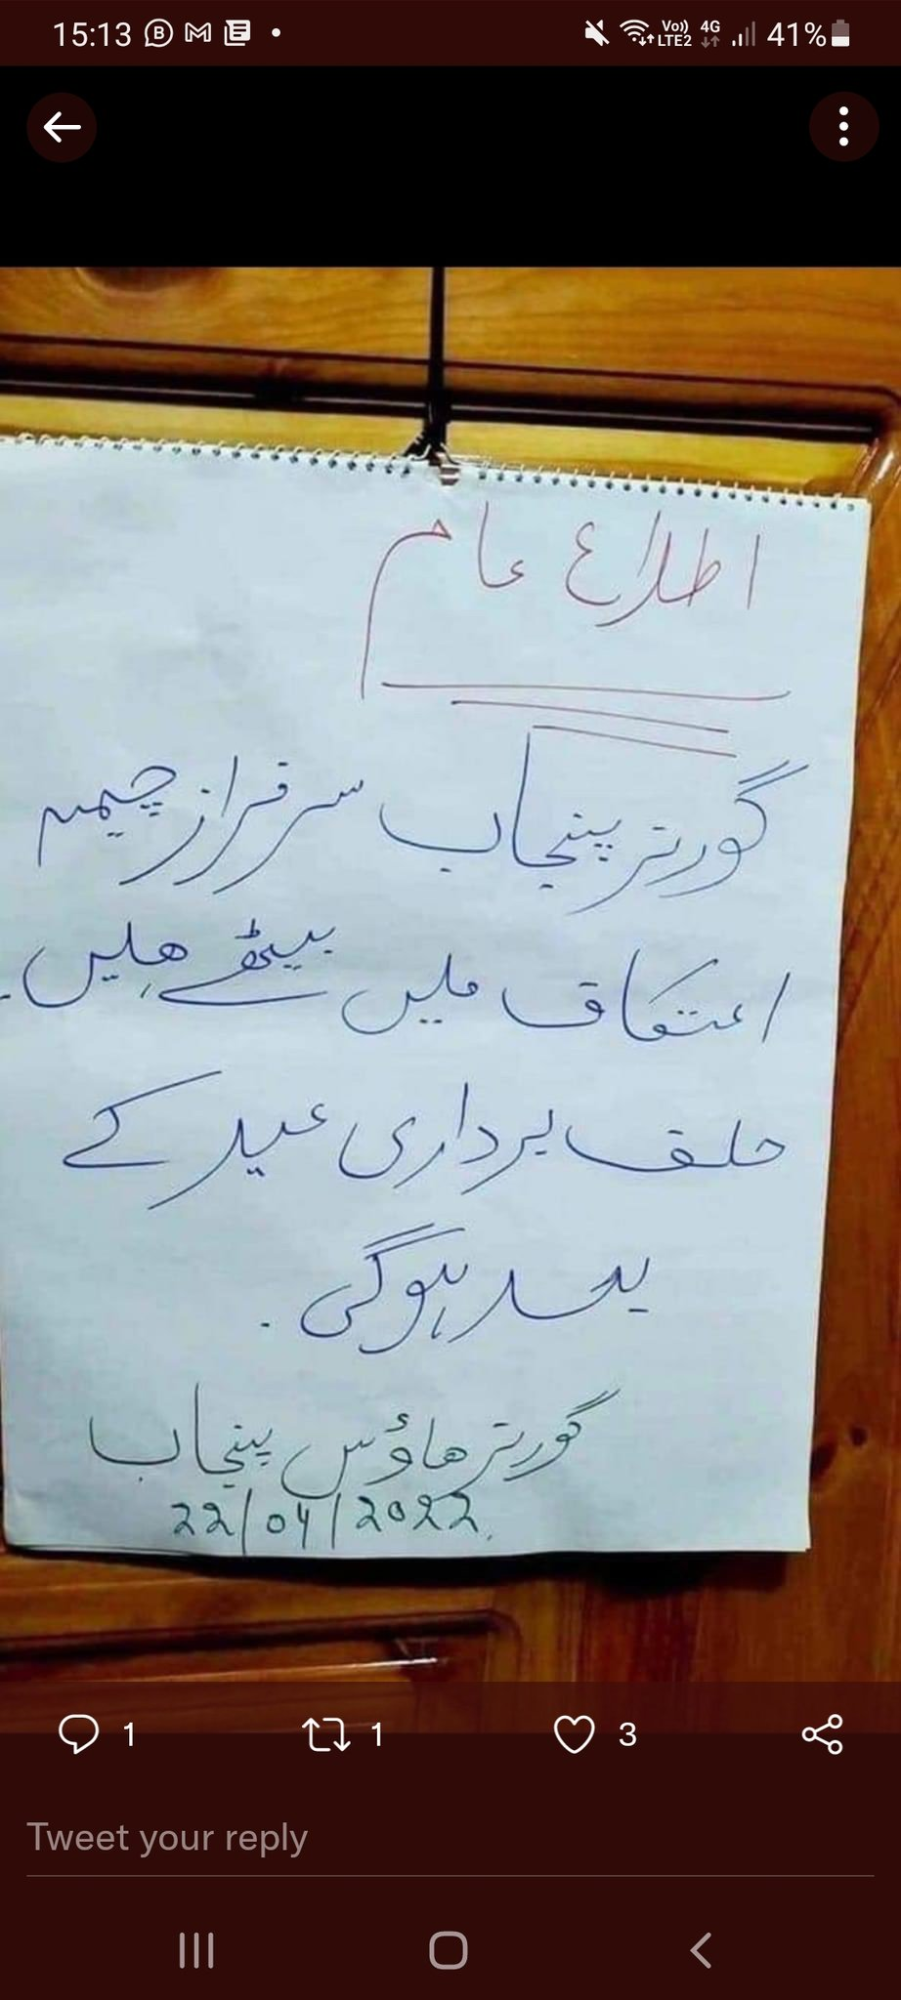 15:13
Vo)) LTE2 4G 41%
اطلاع عام
گورنر پنجاب سرفراز چیمہ
اعتکاف میں بیٹھے ہیں۔
حلف برداری عید کے
بعد ہوگی۔
گورنر ہاؤس پنجاب
22/04/2022
1 1 3
Tweet your reply